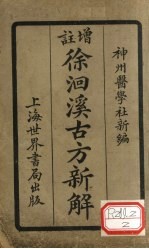 神州醫學社新編
增註
徐洄溪古方新解
上海世界書局出版
2